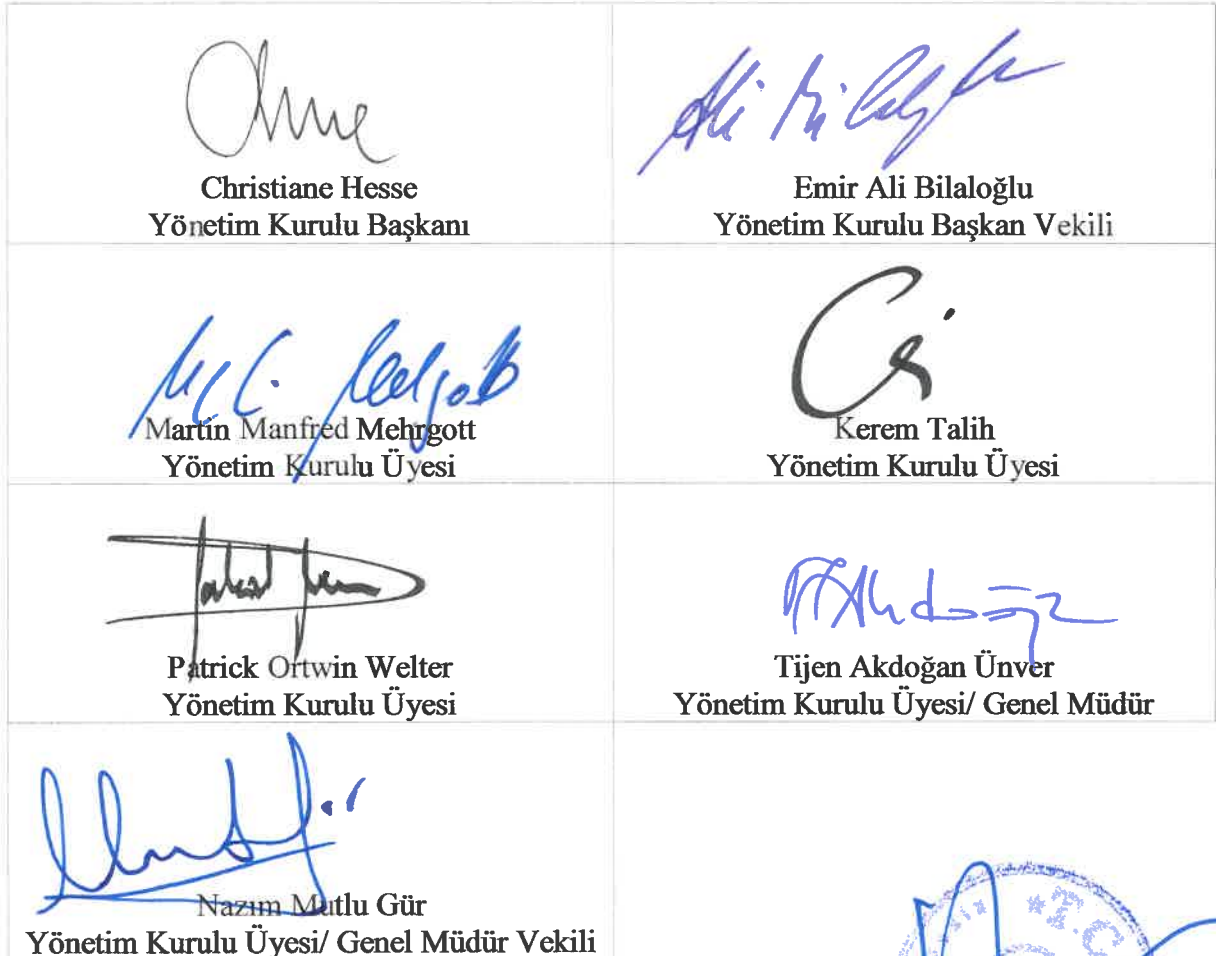 Christiane Hesse
Yönetim Kurulu Başkanı
Emir Ali Bilaloğlu
Yönetim Kurulu Başkan Vekili
Martin Manfred Mehrgott
Yönetim Kurulu Üyesi
Kerem Talih
Yönetim Kurulu Üyesi
Patrick Ortwin Welter
Yönetim Kurulu Üyesi
Tijen Akdoğan Ünver
Yönetim Kurulu Üyesi/ Genel Müdür
Nazım Mutlu Gür
Yönetim Kurulu Üyesi/ Genel Müdür Vekili
T.C.